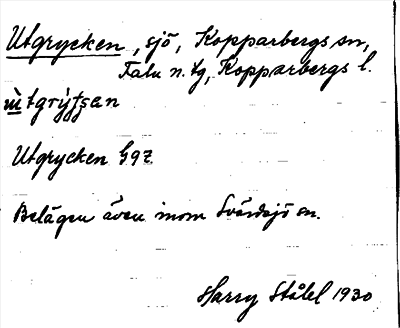 Utgrycken, sjö, Kopparbergs sn,
Falu n. tg, Kopparbergs l.
Utgrycken G92
Belägen även inom Svärdsjö sn.
Harry Ståhl 1930